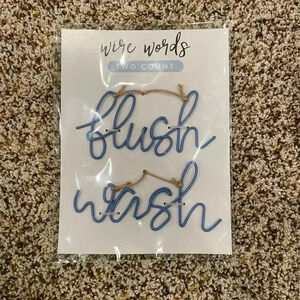 wire words
TWO COUNT
flush
wash